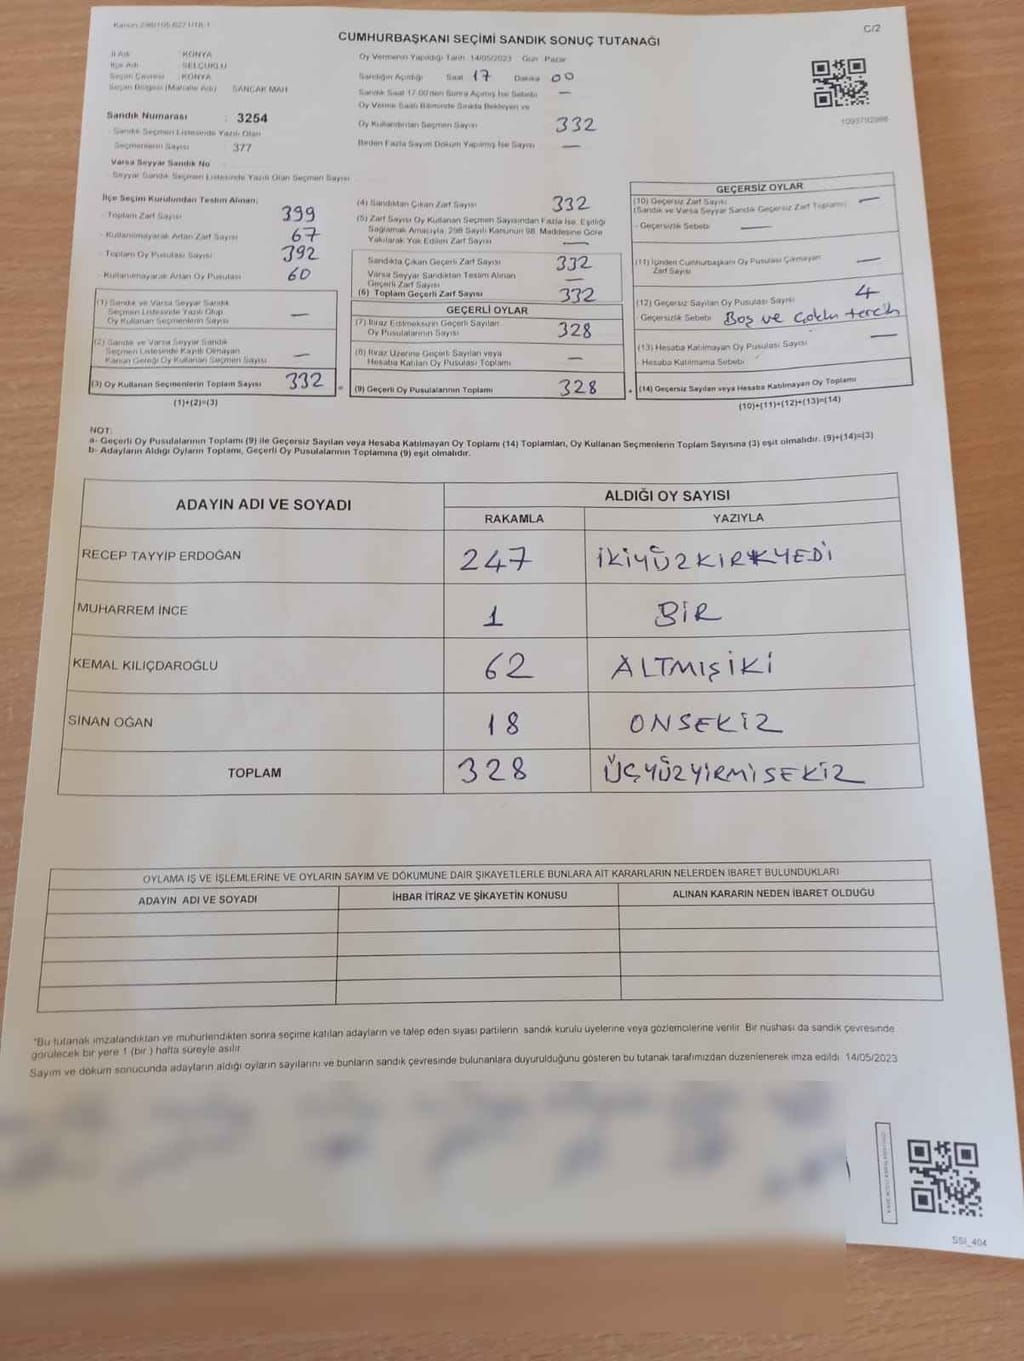 C/2
CUMHURBAŞKANI SEÇİMİ SANDIK SONUÇ TUTANAĞI
İl Adı : KONYA
İlçe Adı : SELÇUKLU
Seçim Çevresi : KONYA
Seçim Bölgesi (Mahalle Adı) SANCAK MAH
Sandık Numarası : 3254
Sandık Seçmen Listesinde Yazılı Olan
Seçmenlerin Sayısı 377
Varsa Seyyar Sandık No
Seyyar Sandık Seçmen Listesinde Yazılı Olan Seçmen Sayısı
Oy Vermenin Yapıldığı Tarih 14/05/2023 Gün Pazar
Sandığın Açıldığı Saat 17 Dakika 00
Sandık Saat 17:00'den Sonra Açılmış İse Sebebi —
Oy Verme Saati Bitiminde Sırada Bekleyen ve
Oy Kullandırılan Seçmen Sayısı 332
Birden Fazla Sayım Döküm Yapılmış İse Sayısı —
İlçe Seçim Kurulundan Teslim Alınan;
- Toplam Zarf Sayısı 399
- Kullanılmayarak Artan Zarf Sayısı 67
- Toplam Oy Pusulası Sayısı 392
- Kullanılmayarak Artan Oy Pusulası 60
(1) Sandık ve Varsa Seyyar Sandık
Seçmen Listesinde Yazılı Olup
Oy Kullanan Seçmenlerin Sayısı —
(2) Sandık ve Varsa Seyyar Sandık
Seçmen Listesinde Kayıtlı Olmayan
Kanun Gereği Oy Kullanan Seçmen Sayısı —
(3) Oy Kullanan Seçmenlerin Toplam Sayısı 332
(1)+(2)=(3)
(4) Sandıktan Çıkan Zarf Sayısı 332
(5) Zarf Sayısı Oy Kullanan Seçmen Sayısından Fazla İse, Eşitliği
Sağlamak Amacıyla, 298 Sayılı Kanunun 98. Maddesine Göre
Yakılarak Yok Edilen Zarf Sayısı —
Sandıkta Çıkan Geçerli Zarf Sayısı 332
Varsa Seyyar Sandıktan Teslim Alınan
Geçerli Zarf Sayısı —
(6) Toplam Geçerli Zarf Sayısı 332
GEÇERLİ OYLAR
(7) İtiraz Edilmeksizin Geçerli Sayılan
Oy Pusulalarının Sayısı 328
(8) İtiraz Üzerine Geçerli Sayılan veya
Hesaba Katılan Oy Pusulası Toplamı —
(9) Geçerli Oy Pusulalarının Toplamı 328
GEÇERSİZ OYLAR
(10) Geçersiz Zarf Sayısı
(Sandık ve Varsa Seyyar Sandık Geçersiz Zarf Toplamı) —
- Geçersizlik Sebebi —
(11) İçinden Cumhurbaşkanı Oy Pusulası Çıkmayan
Zarf Sayısı —
(12) Geçersiz Sayılan Oy Pusulası Sayısı 4
Geçersizlik Sebebi Boş ve çoklu tercih
(13) Hesaba Katılmayan Oy Pusulası Sayısı —
- Hesaba Katılmama Sebebi
(14) Geçersiz Sayılan veya Hesaba Katılmayan Oy Toplamı
(10)+(11)+(12)+(13)=(14)
NOT:
a- Geçerli Oy Pusulalarının Toplamı (9) ile Geçersiz Sayılan veya Hesaba Katılmayan Oy Toplamı (14) Toplamları, Oy Kullanan Seçmenlerin Toplam Sayısına (3) eşit olmalıdır. (9)+(14)=(3)
b- Adayların Aldığı Oyların Toplamı, Geçerli Oy Pusulalarının Toplamına (9) eşit olmalıdır.
ADAYIN ADI VE SOYADI ALDIĞI OY SAYISI
RAKAMLA YAZIYLA
RECEP TAYYİP ERDOĞAN 247 İKİYÜZKIRKYEDİ
MUHARREM İNCE 1 BİR
KEMAL KILIÇDAROĞLU 62 ALTMIŞİKİ
SİNAN OĞAN 18 ONSEKİZ
TOPLAM 328 ÜÇYÜZYİRMİSEKİZ
OYLAMA İŞ VE İŞLEMLERİNE VE OYLARIN SAYIM VE DÖKÜMÜNE DAİR ŞİKAYETLERLE BUNLARA AİT KARARLARIN NELERDEN İBARET BULUNDUKLARI
ADAYIN ADI VE SOYADI İHBAR İTİRAZ VE ŞİKAYETİN KONUSU ALINAN KARARIN NEDEN İBARET OLDUĞU
*Bu tutanak imzalandıktan ve mühürlendikten sonra seçime katılan adayların ve talep eden siyasi partilerin sandık kurulu üyelerine veya gözlemcilerine verilir. Bir nüshası da sandık çevresinde
görülecek bir yere 1 (bir) hafta süreyle asılır.
Sayım ve döküm sonucunda adayların aldığı oyların sayılarını ve bunların sandık çevresinde bulunanlara duyurulduğunu gösteren bu tutanak tarafımızdan düzenlenerek imza edildi. 14/05/2023
SSI_404